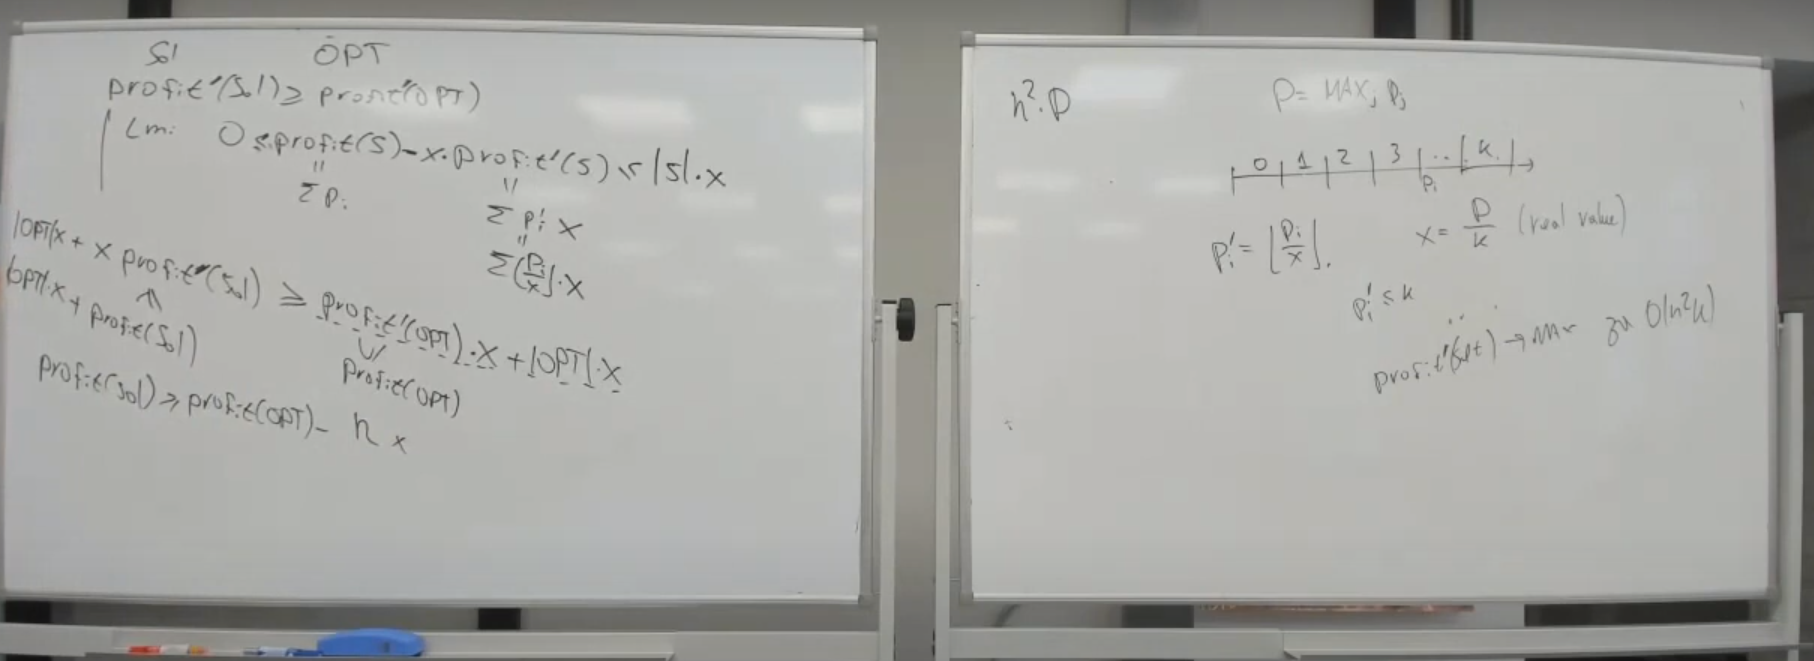 Sol OPT
profit'(Sol) ≥ profit'(OPT)
Lm: 0 ≤ profit(S) - x·profit'(S) ≤ |S|·x
= =
Σ Pi Σ Pi' x
=
Σ⌊Pi/x⌋·x
|OPT|x + x profit'(Sol) ≥ profit'(OPT)·x + |OPT|·x
|OPT|·x + profit(Sol) profit(OPT)
profit(Sol) ≥ profit(OPT) - n x
n²·P P = MAXj Pj
0 1 2 3 ... k
Pi
Pi' = ⌊Pi/x⌋. x = P/k (real value)
Pi' ≤ k
profit'(Set) → max за O(n²k)